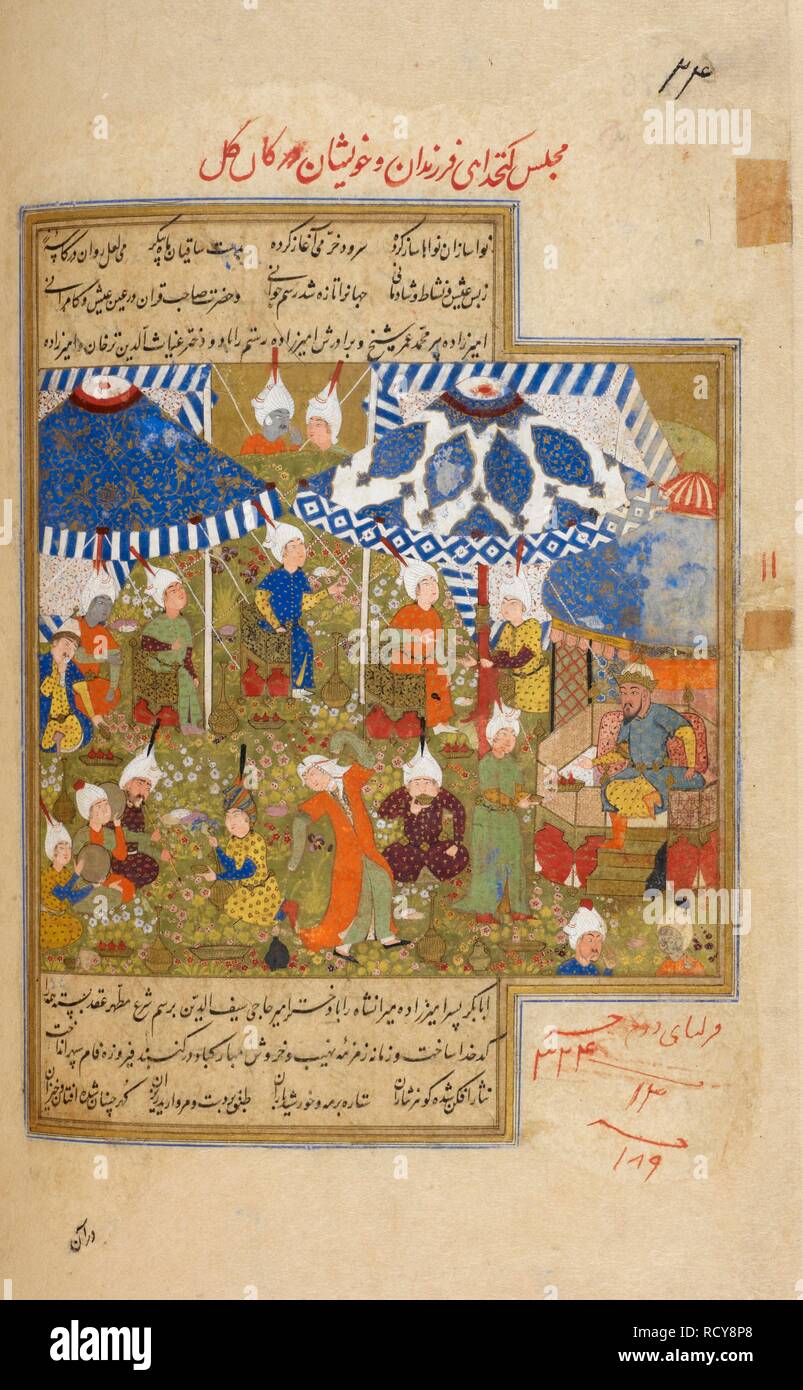 ۳۴
مجلس کتخدای فرزندان و خویشان در کان گل
نوا سازان نواها ساز کرده سرود خرمی آغاز کرده بدست ساقیان ماه پیکر می لعل روان در کاسه زر
ز بس عیش و نشاط و شادمانی جهانرا تازه شد رسم جوانی و حضرت صاحب قران در عین عیش و کامرانی
امیرزاده پیر محمد عمر شیخ و برادرش امیرزاده رستم را با دو دختر غیاث الدین ترخان و امیرزاده
ابابکر پسر امیرزاده میرانشاه را با دختر امیر حاجی سیف الدین برسم شرع مطهر عقد بسته همه
کدخدا ساخت و زمانه زمزمه تهنیت و خروش مبارکباد در گنبد فیروزه فام سپهر انداخت
نثار افکن شده گوهر نثاران ستاره بر مه و خورشید باران طبق بر دست و مروارید ریزان گهر چینان شده افتان و خیزان
۱۱
۳۲۴
۱۳
۱۸۹
در آن
alamy
a
alamy stock photo
Image ID: RCY8P8
www.alamy.com